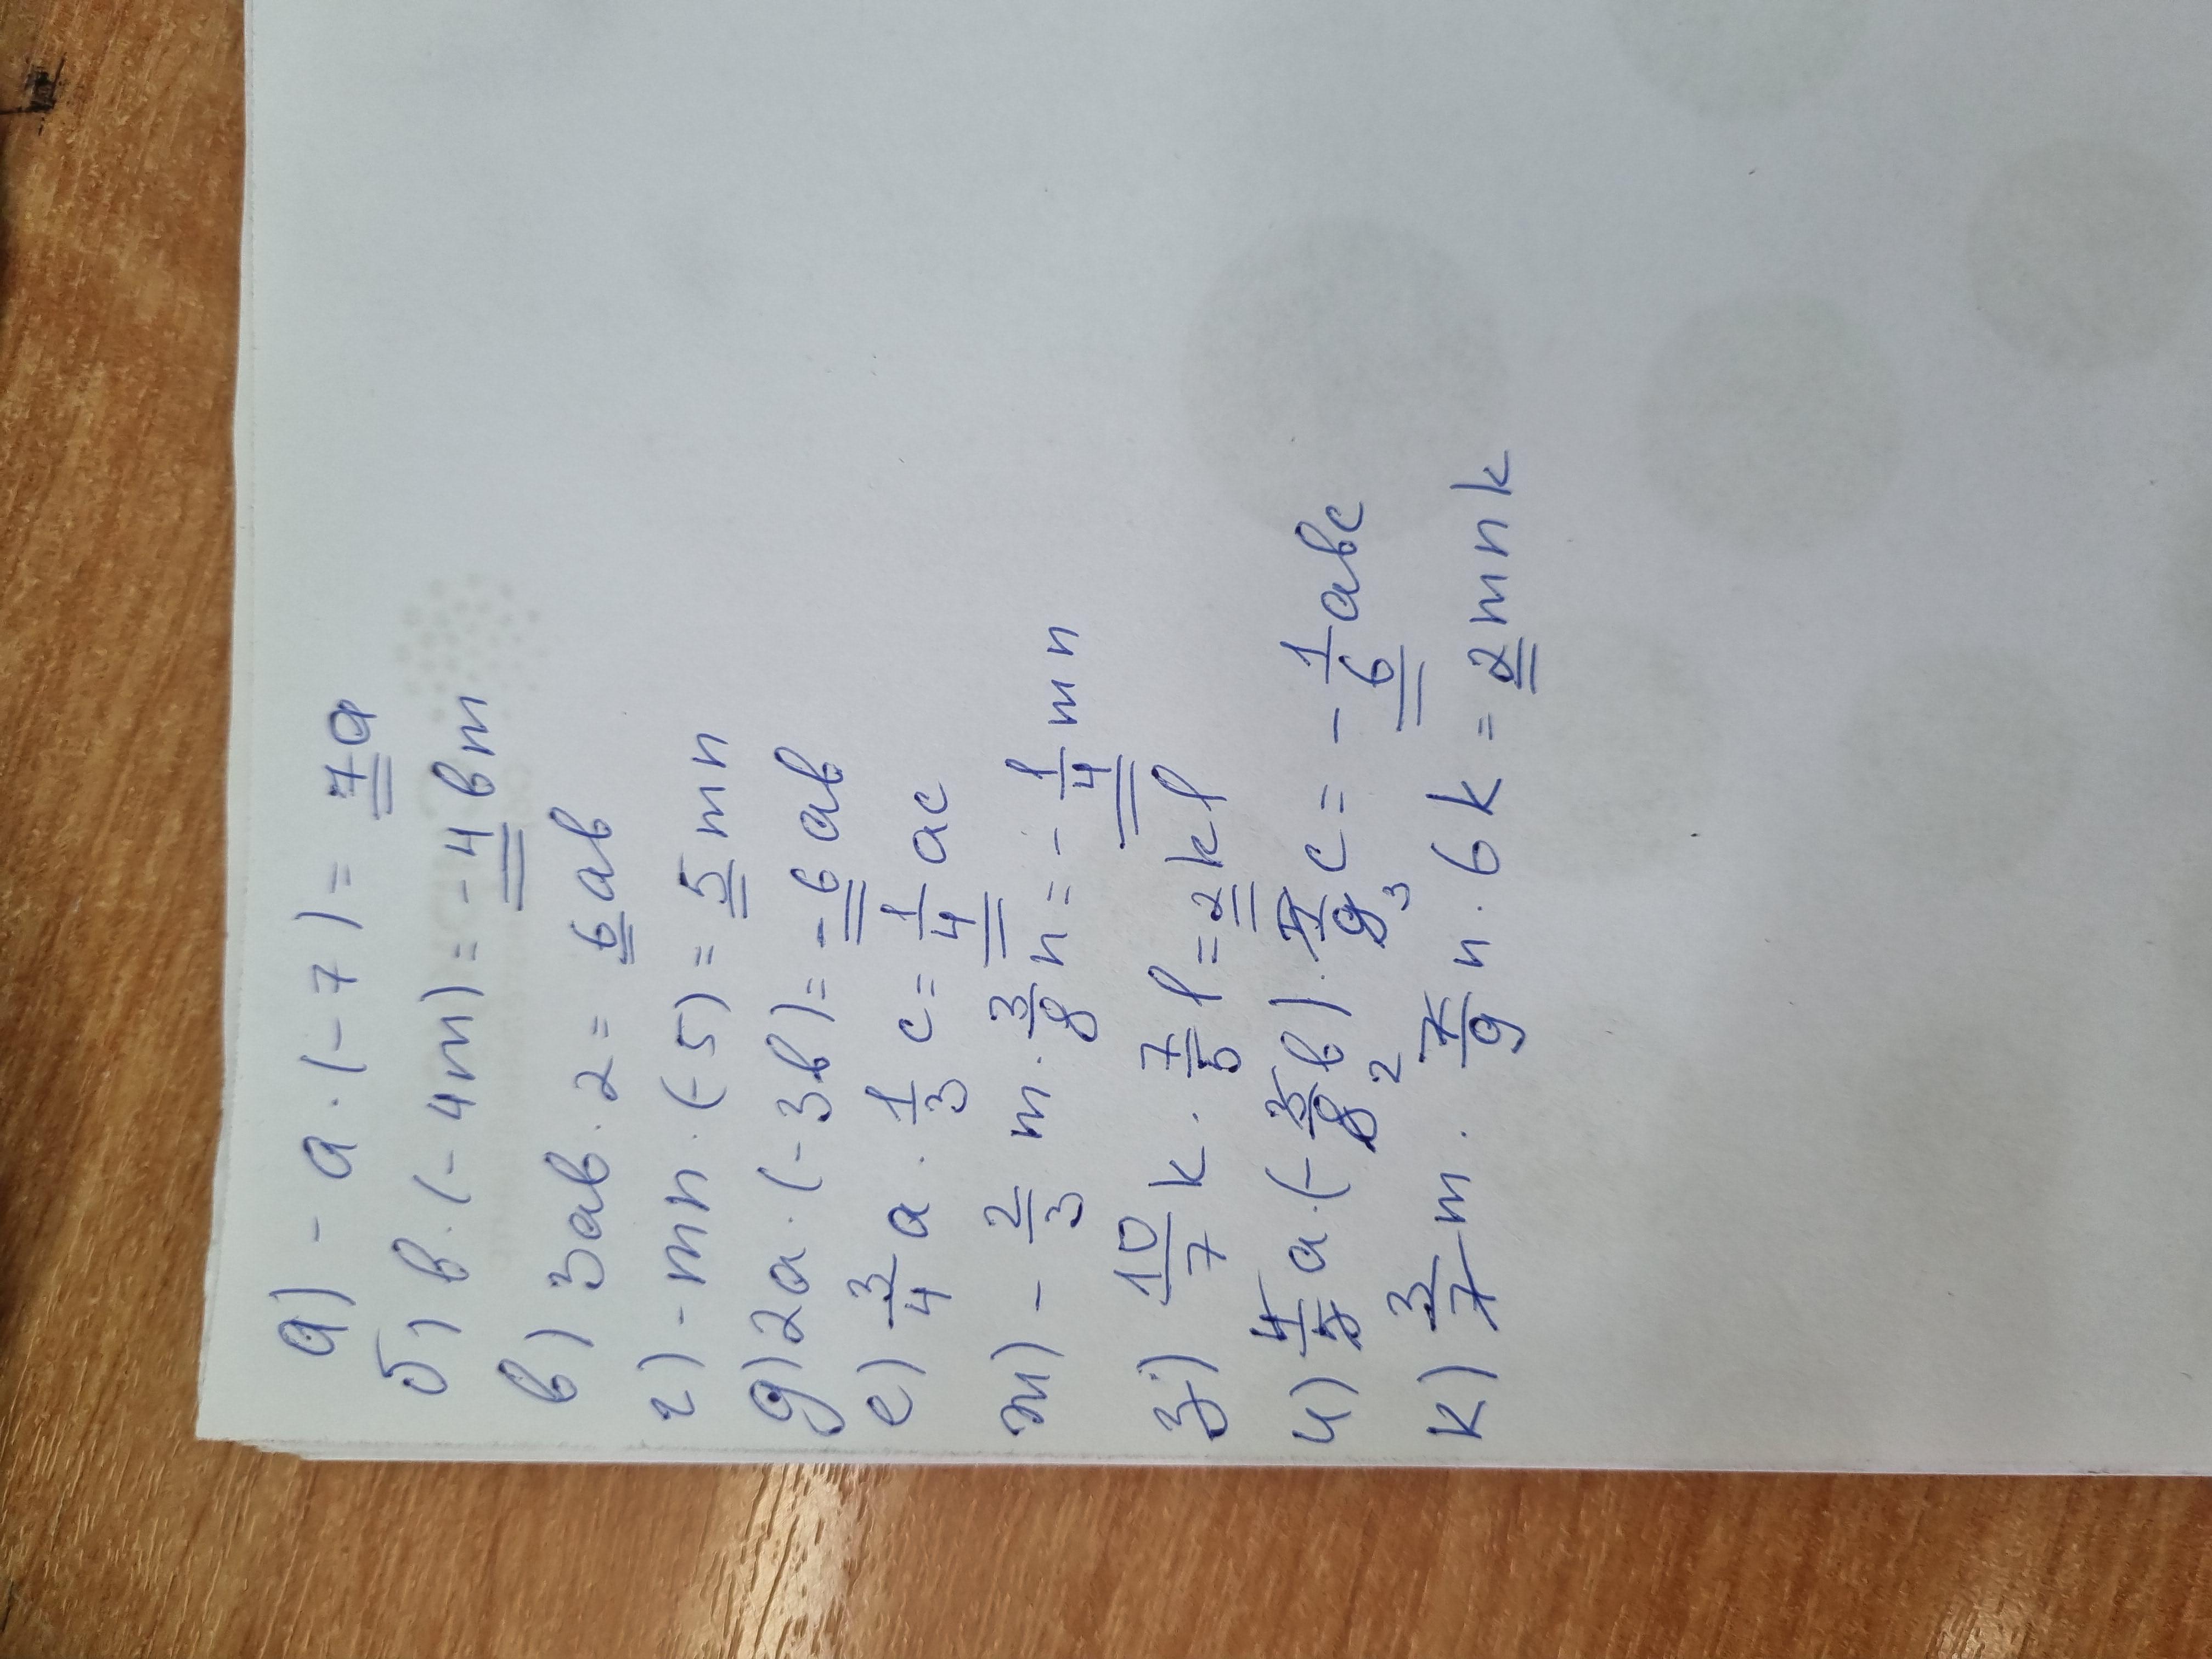 а) - a · (-7) = 7a
б) b · (-4m) = -4bm
в) 3ab · 2 = 6ab
г) -mn · (-5) = 5mn
д) 2a · (-3b) = -6ab
е) 3/4 a · 1/3 c = 1/4 ac
ж) - 2/3 m · 3/8 n = - 1/4 mn
з) 10/7 k · 7/5 l = 2kl
и) 4/7 a · (- 3/8 2 b) · 7/9 3 c = - 1/6 abc
к) 3/7 m · 7/9 n · 6k = 2mnk